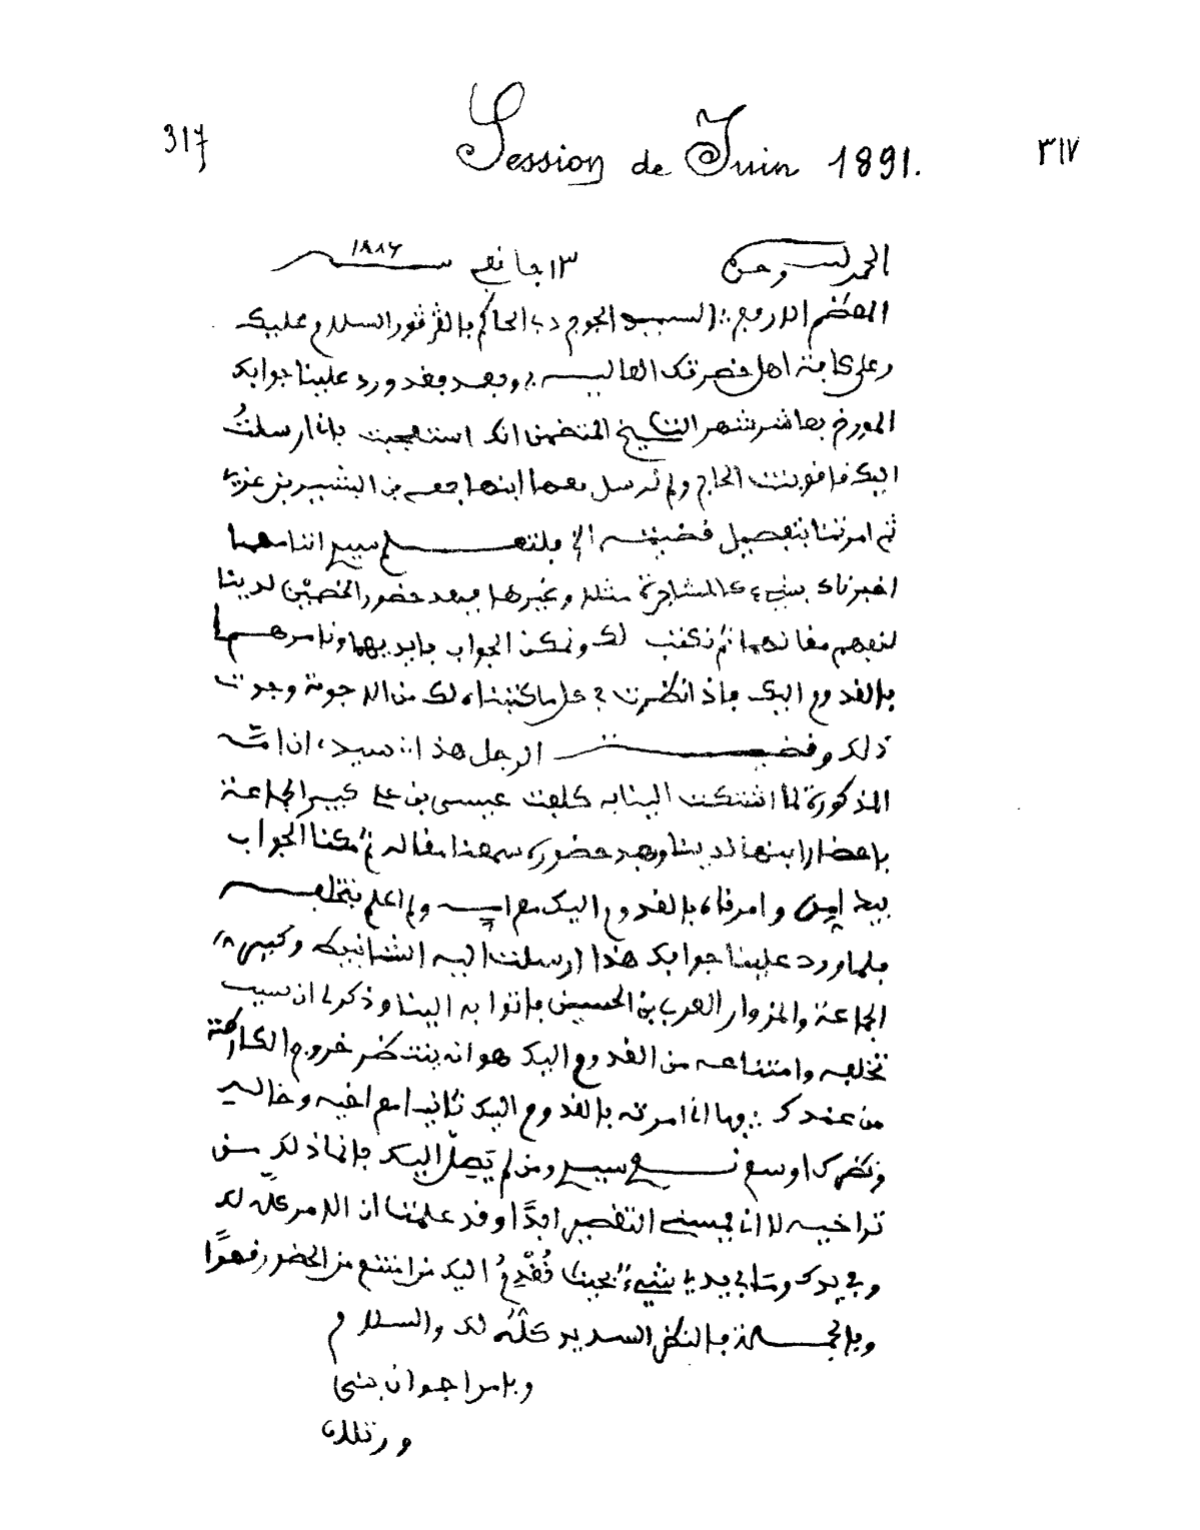 317 Session de Juin 1891. ٣١٧
الحمد لله وحده ١٣ جانفي سنة ١٨٨٦
المعظم الارفع السيد الجوج دبي الحاكم بالقرقور السلام عليك
وعلى كافة اهل حضرتك العالية وبعد فقد ورد علينا جوابك
المورخ بعاشر شهر التاريخ المتضمن انك استعجبت بانا ارسلت
اليك بنت الحاج ولم نرسل معها ابنها من البشير بن
ثم امرتنا بتفصيل قضيته الخ فلتعلم سيدي اننا مهما
اخبرناك بشيء كالمشاجرة مثلا وغيرها فبعد حضور الخصمين لدينا
لنفهم مقالهما ثم نكتب لك ونمكن الجواب بايديهما ونامرهما
بالقدوم اليك فاذا نظرت في كل ما كتبناه لك من الاجوبة وجدت
ذلك وقضية الرجل هذا سيدي ان امه
المذكورة لما اشتكت الينا به كلفت عيسى بن علي كبير الجماعة
باحضار ابنها لدينا وبعد حضوره سمعنا مقاله ثم مكنا الجواب
بيد وامرناه بالقدوم اليك مع امه ولم اعلم بتخلفه
فلما ورد علينا جوابك هذا ارسلت اليه وكبير
الجماعة والمزوار العرب بن الحسين فاتوا به الينا وذكر لي ان سبب
تخلفه وامتناعه من القدوم اليك هو انه ينتظر خروج الكارطة
من عندك فها انا امرته بالقدوم اليك ثانيا مع اخيه وخاله
ونظرك اوسع نعم سيدي ومن لم يصل اليك فانما ذلك من
تراخيه لا انا يمسني التقصير ابدا وقد علمنا ان الامر كله لك
وفي يدك وما بيدي شيء بحيث نقدم اليك من امتنع من الحضور قهرا
وبالجملة فالنظر السديد كله لك والسلام
وبامر اجوان بني
ورتلان